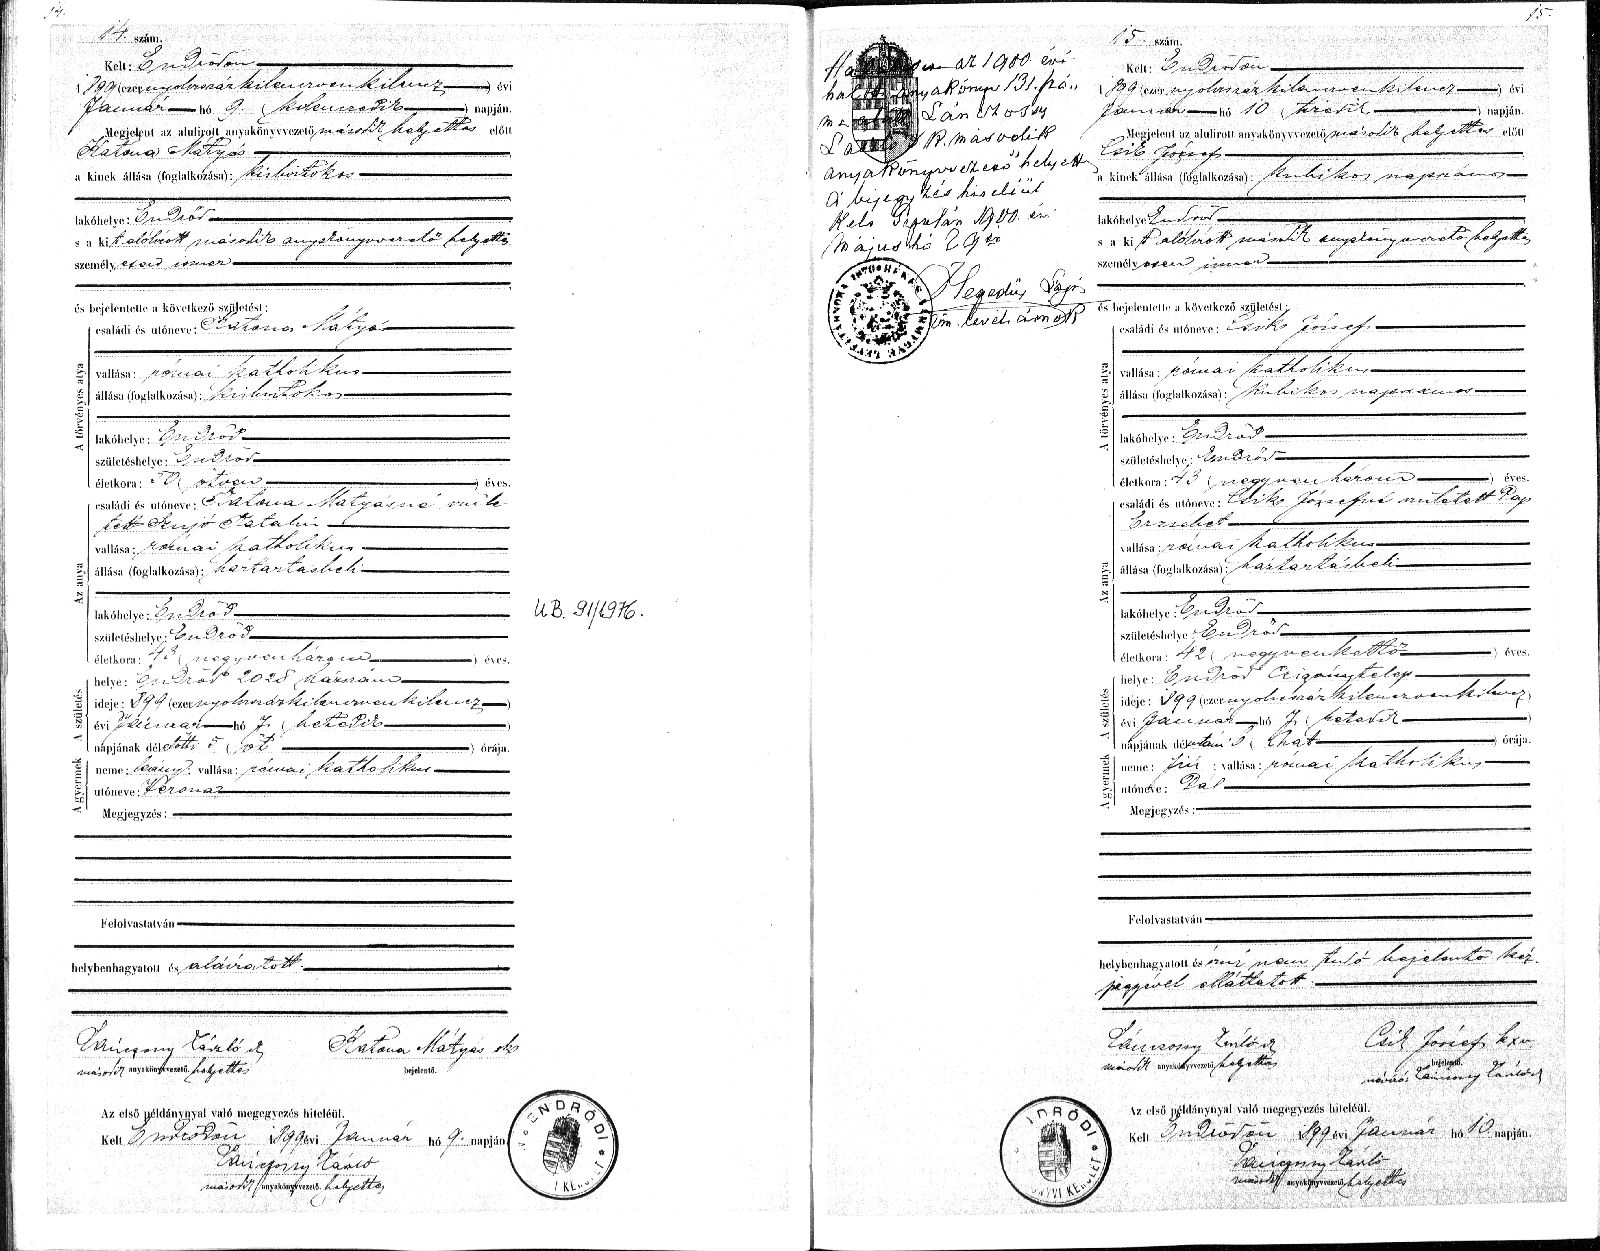 14.
14. szám.
Kelt: Endrődön
1899 (ezernyolcszázkilenczvenkilencz) évi
Január hó 9. (kilenczedik) napján.
Megjelent az alulirott anyakönyvvezető második helyettes előtt
Katona Mátyás
a kinek állása (foglalkozása): kisbirtokos
lakóhelye: Endrőd
s a kit alólirott második anyakönyvvezető helyettes
személyesen ismer
és bejelentette a következő születést:
A törvényes atya
családi és utóneve: Katona Mátyás
vallása: római katholikus
állása (foglalkozása): kisbirtokos
lakóhelye: Endrőd
születéshelye: Endrőd
életkora: 50 (ötven) éves.
Az anya
családi és utóneve: Katona Mátyásné szüle
tett Katalin
vallása: római katholikus
állása (foglalkozása): háztartásbeli
lakóhelye: Endrőd
születéshelye: Endrőd
életkora: 43 (negyvenhárom) éves.
A születés
helye: Endrőd 2028 házszám
ideje: 1899 (ezernyolcszázkilenczvenkilencz)
évi Január hó 7. (hetedik)
napjának délelőtti 5 (öt) órája.
A gyermek
neme: leány; vallása: római katholikus
utóneve: Verona
Megjegyzés:
Felolvastatván
helybenhagyatott és aláiratott.
László
második anyakönyvvezető helyettes
Katona Mátyás sk
bejelentő.
Az első példánynyal való megegyezés hiteléül.
Kelt Endrődön 1899 évi Január hó 9. napján
László
második anyakönyvvezető helyettes
ENDRŐDI
UB. 91/1976.
15.
az 1900. évi
halotti anyakönyv 131. szá..
László h. második
anyakönyvvezető helyett
A bejegyzés hiteléül
Kelt Gyulán 1900. évi
május hó 29én
Hegedüs Lajos
levéltárnok
BÉKÉS VÁRMEGYE LEVÉLTÁRNOKA 1876
15. szám.
Kelt: Endrődön
1899 (ezernyolcszázkilenczvenkilencz) évi
Január hó 10 (tizedik) napján.
Megjelent az alulirott anyakönyvvezető második helyettes előtt
Csik József
a kinek állása (foglalkozása): kubikos napszámos
lakóhelye: Endrőd
s a kit alólirott második anyakönyvvezető helyettes
személyesen ismer
és bejelentette a következő születést:
A törvényes atya
családi és utóneve: Csik József
vallása: római katholikus
állása (foglalkozása): kubikos napszámos
lakóhelye: Endrőd
születéshelye: Endrőd
életkora: 43 (negyvenhárom) éves.
Az anya
családi és utóneve: Csik Józsefné született Pap
Erzsébet
vallása: római katholikus
állása (foglalkozása): háztartásbeli
lakóhelye: Endrőd
születéshelye: Endrőd
életkora: 42 (negyvenkettő) éves.
A születés
helye: Endrőd Czigánytelep
ideje: 1899 (ezernyolcszázkilenczvenkilencz)
évi Január hó 7. (hetedik)
napjának délutáni 6 (hat) órája.
A gyermek
neme: fiú; vallása: római katholikus
utóneve: Pál
Megjegyzés:
Felolvastatván
helybenhagyatott és irni nem tudó bejelentő kéz
jegyével elláttatott.
László
második anyakönyvvezető helyettes
Csik József kxv
bejelentő.
László
Az első példánynyal való megegyezés hiteléül.
Kelt Endrődön 1899 évi Január hó 10. napján.
László
második anyakönyvvezető helyettes
NDRŐDI
NYVI KERÜLET